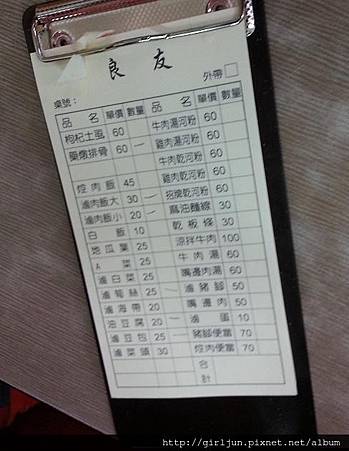 良友
外帶
桌號：
品名 單價 數量 品名 單價 數量
枸杞土虱 60 牛肉湯河粉 60
藥燉排骨 60 雞肉湯河粉 60
牛肉乾河粉 60
焢肉飯 45 雞肉乾河粉 60
滷肉飯大 30 招牌乾河粉 60
滷肉飯小 20 麻油麵線 30
白飯 10 乾板條 30
地瓜葉 25 涼拌牛肉 100
A菜 25 牛肉湯 60
滷白菜 25 嘴邊肉湯 60
滷筍絲 25 滷豬腳 50
滷海帶 20 嘴邊肉 50
油豆腐 20 滷蛋 10
滷豆包 25 豬腳便當 70
滷菜頭 30 焢肉便當 70
合計
http://girljun.pixnet.net/album